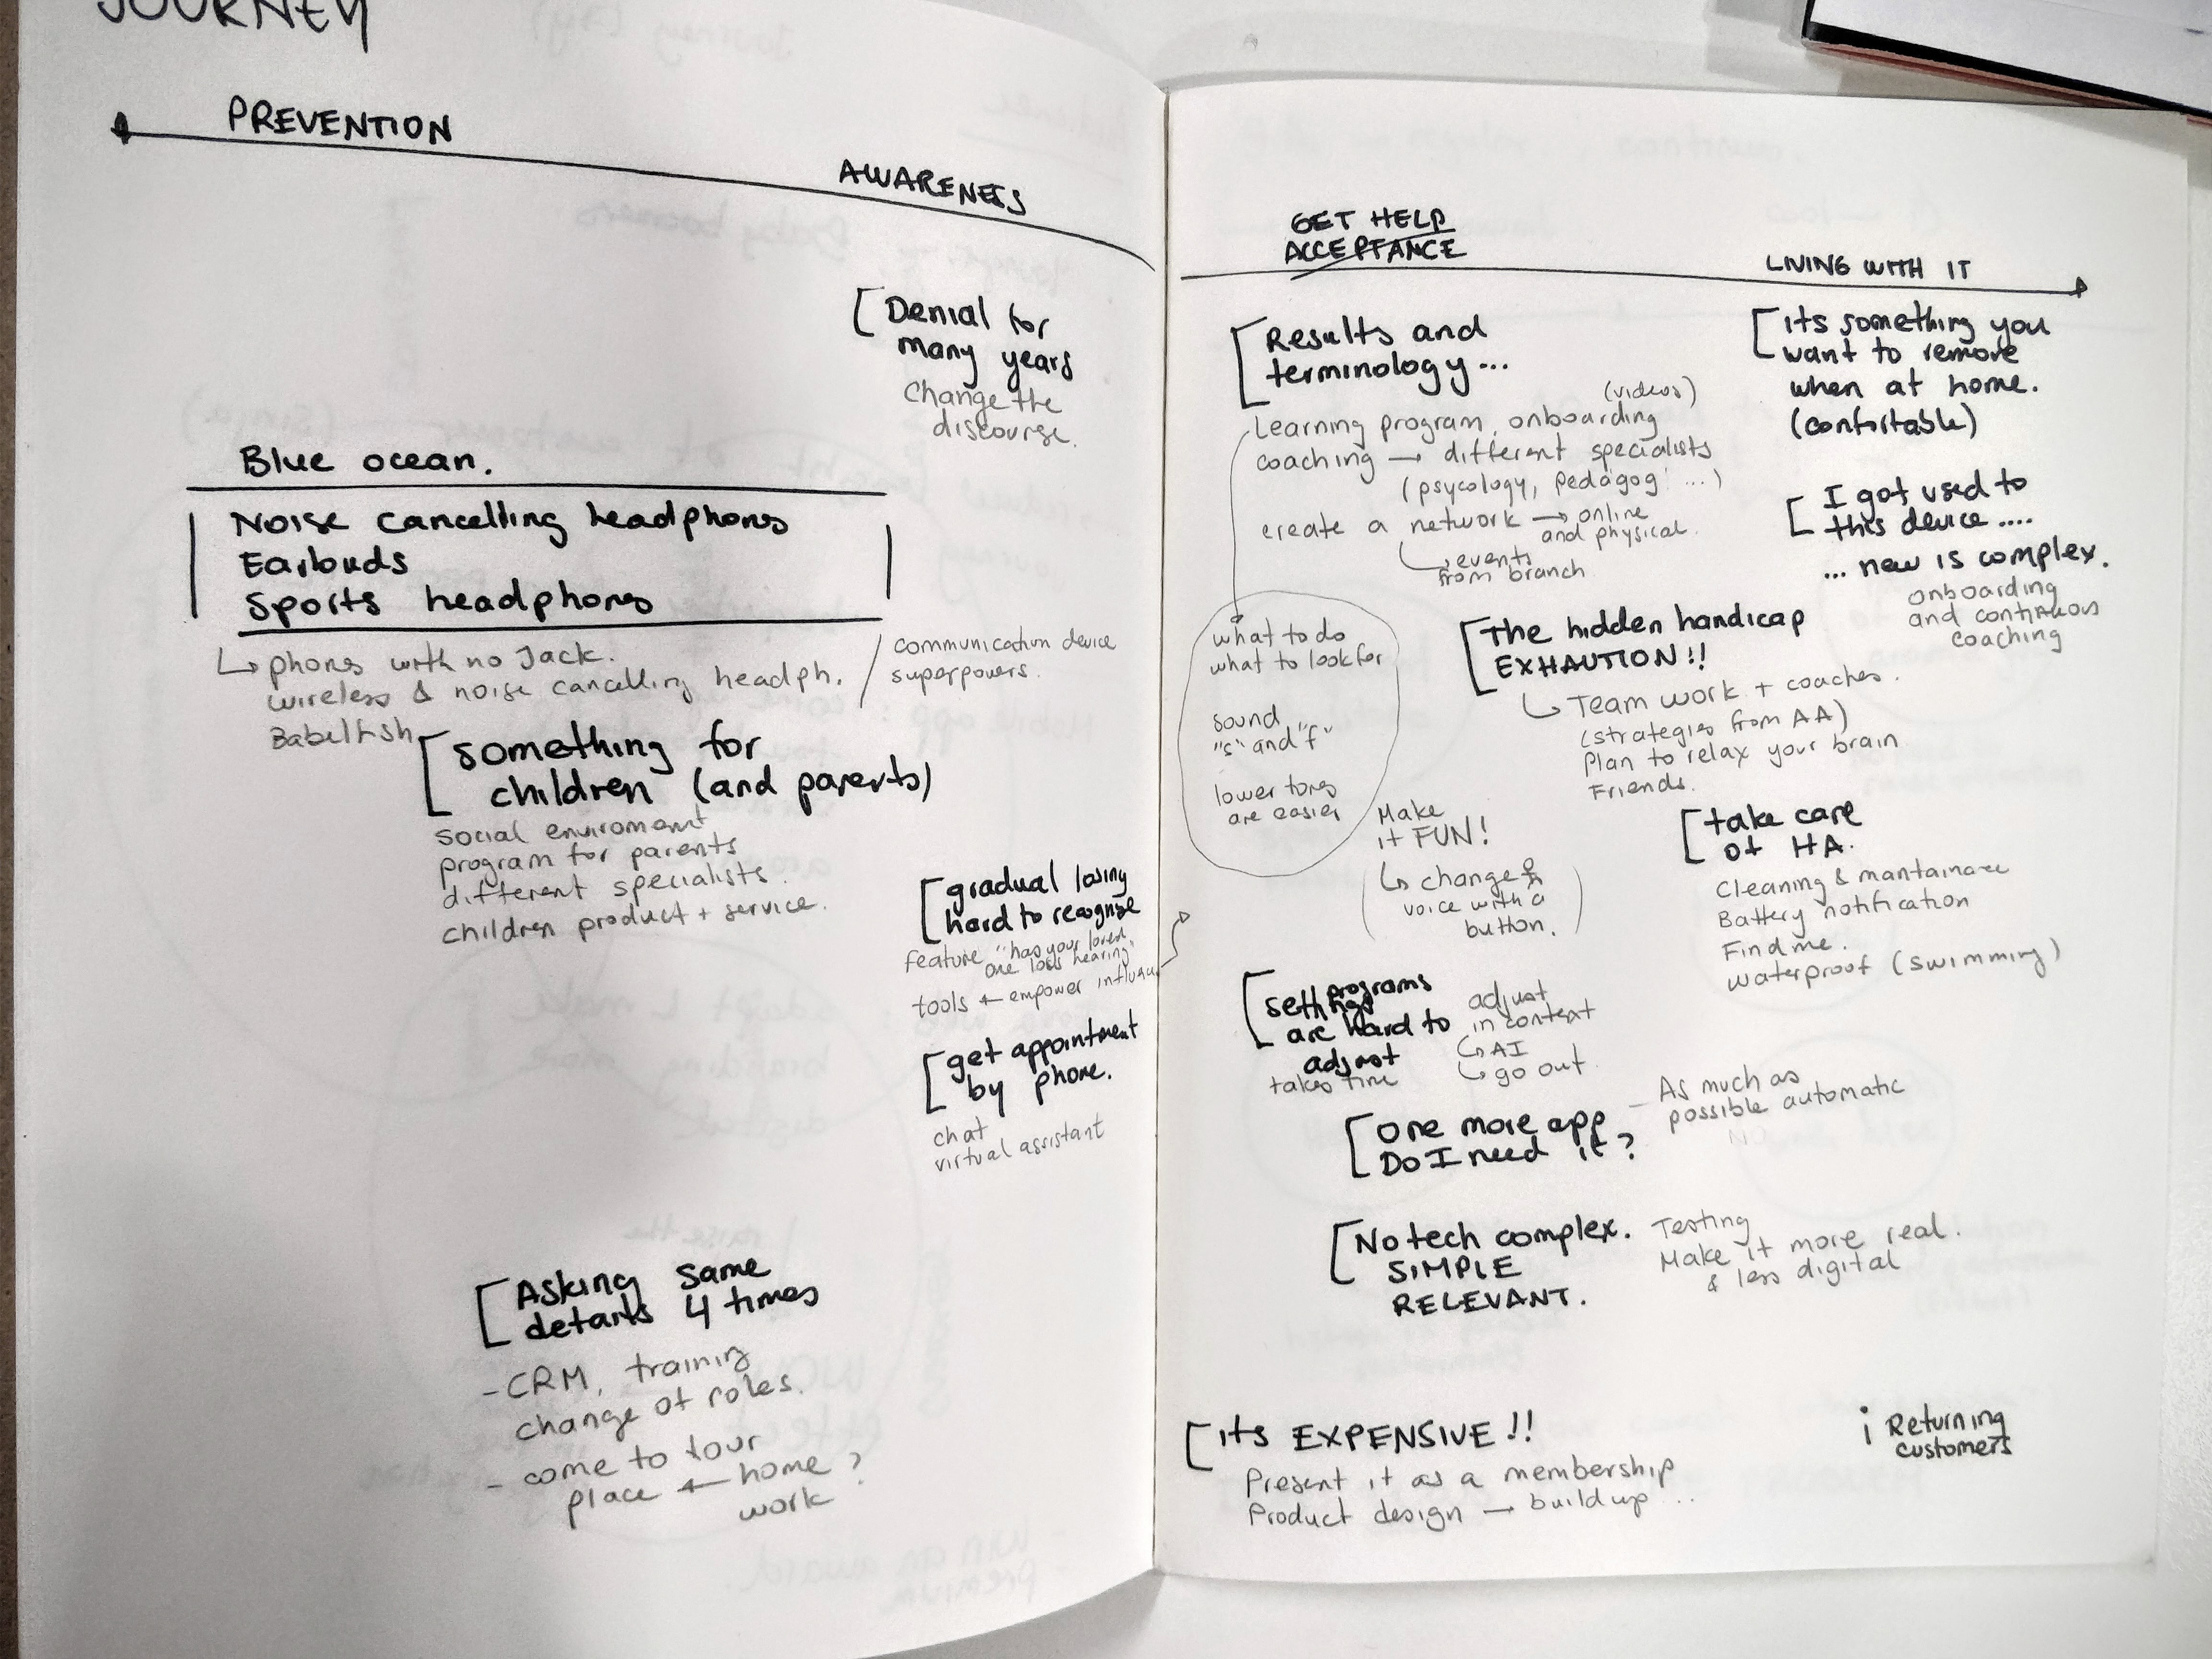 JOURNEY
PREVENTION
AWARENESS
[Denial for
many years
Change the
discourse.
Blue ocean.
Noise cancelling headphones
Earbuds
Sports headphones
phones with no Jack.
wireless & noise cancelling headph.
Babelfish
/ communication device
superpowers.
[something for
children (and parents)
social enviroment
program for parents
different specialists.
children product + service.
[gradual losing
hard to recognise
feature "has your loved
one loss hearing"
tools ← empower
[get appointment
by phone.
chat
virtual assistant
[Asking same
details 4 times
- CRM, training
change of roles.
- come to
place ← home?
work
GET HELP
ACCEPTANCE
LIVING WITH IT
[Results and
terminology...
(videos)
Learning program, onboarding
coaching → different specialists
(psycology, pedagog ...)
create a network → online
and physical.
events
from branch
what to do
what to look for
sound
"s" and "f"
lower tones
are easier
[The hidden handicap
EXHAUTION!!
Team work + coaches.
(strategies from AA)
Plan to relax your brain
Friends.
Make
it FUN!
(↳ change
voice with a
button.)
[programs
settings
are hard to
adjust
takes time
adjust
in context
↳ AI
↳ go out.
[one more app
Do I need it?
- As much as
possible automatic
[No tech complex.
SIMPLE
RELEVANT.
Testing
Make it more real.
& less digital
[its EXPENSIVE!!
Present it as a membership
Product design → build up ...
[its something you
want to remove
when at home.
(confortable)
[I got used to
this device....
... new is complex.
onboarding
and continuous
coaching
[take care
of HA.
Cleaning & mantainance
Battery notification
Find me.
waterproof (swimming)
Returning
customers